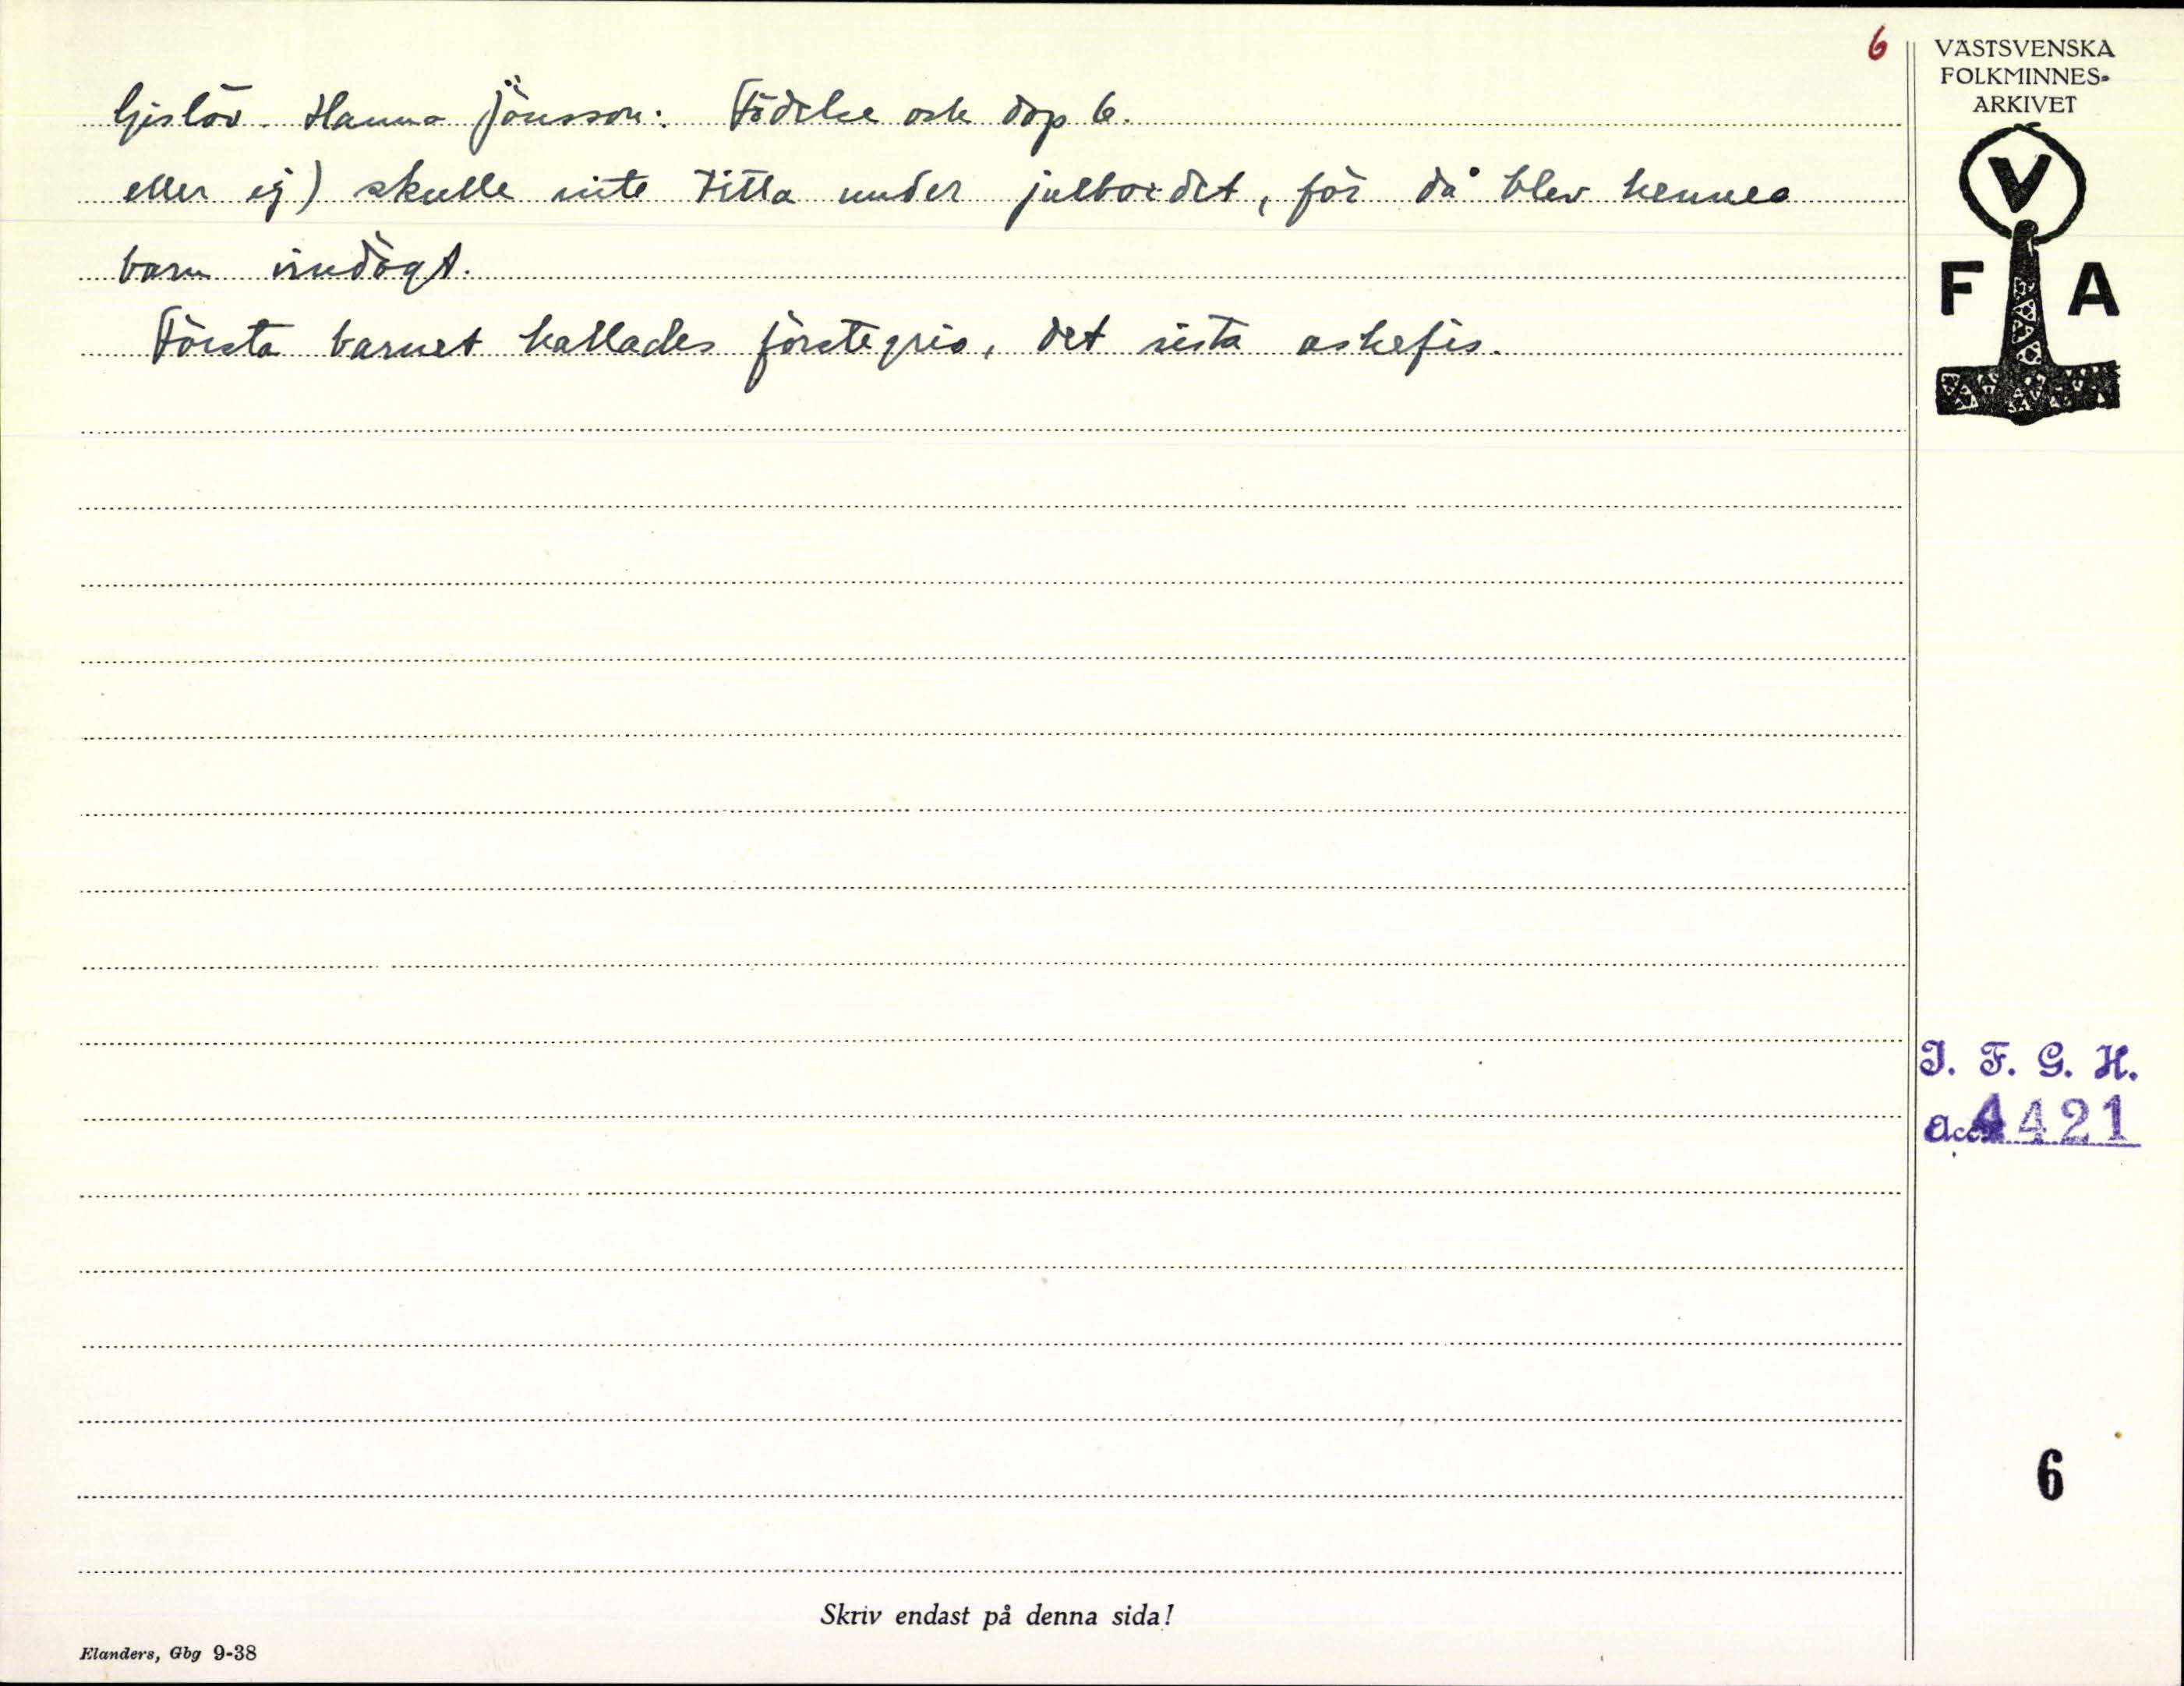 6
VÄSTSVENSKA
FOLKMINNES-
ARKIVET
V
F A
Gislöv. Hanna Jönsson: Födelse och dop 6.
eller ej) skulle inte titta under julbordet, för då blev hennes
barn vindögt.
Första barnet kallades förstegris, det sista askefis.
I. F. G. H.
Acc. 4421
6
Skriv endast på denna sida!
Elanders, Gbg 9-38